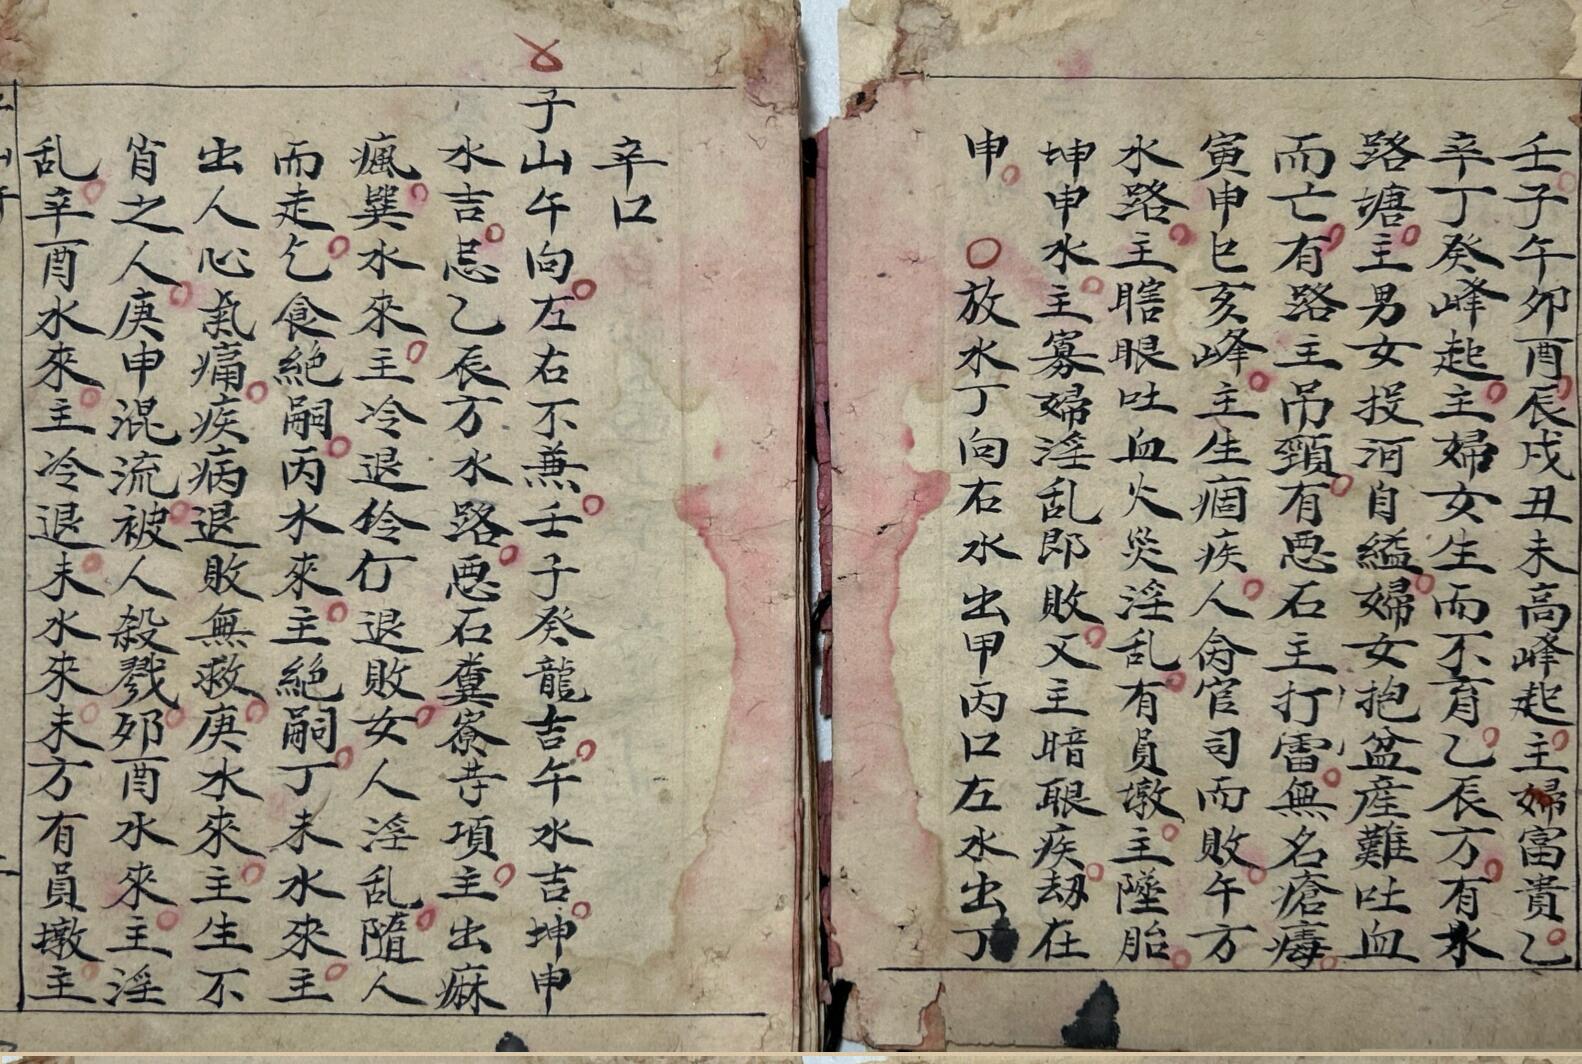 壬子午卯酉辰戌丑未高峰起主婦富貴乙
辛丁癸峰起主婦女生而不育乙辰方有水
路塘主男女投河自縊婦女抱盆産難吐血
而亡有路主吊頸有惡石主打雷無名瘡毒
寅申巳亥峰主生痼疾人命官司而敗午方
水路主瞎眼吐血火災淫乱有員墩主墜胎
坤申水主寡婦淫乱即敗又主暗眼疾刼在
申 ○放水丁向右水出甲丙口左水出丁
辛口
子山午向左右不兼壬子癸龍吉午水吉坤申
水吉忌乙辰方水路惡石糞寮寺項主出麻
瘋巽水來主冷退伶仃退敗女人淫乱隨人
而走乞食絶嗣丙水來主絶嗣丁未水來主
出人心氣痛疾病退敗無救庚水來主生不
肖之人庚申混流被人殺戮卯酉水來主淫
乱辛酉水來主冷退未水來未方有員墩主